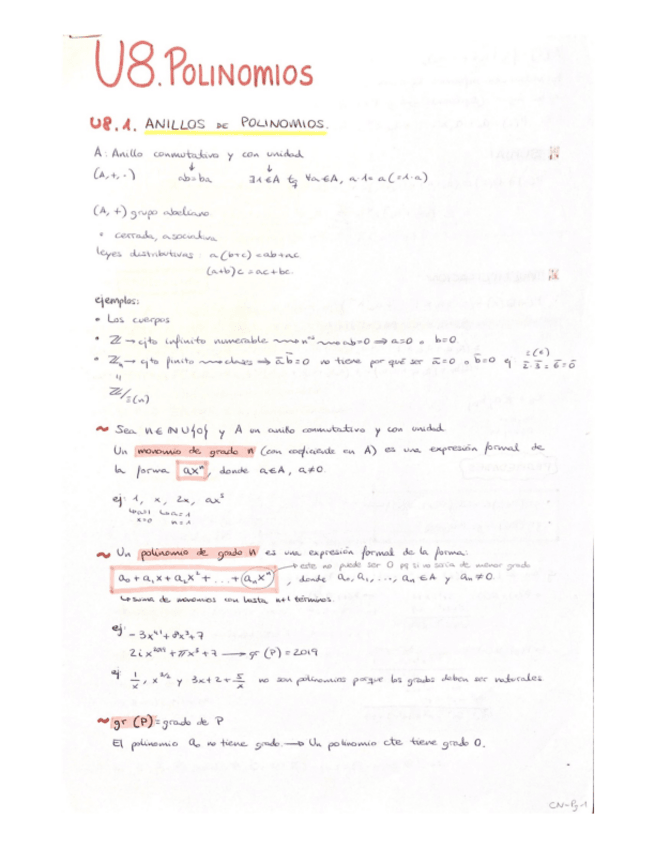 U8. POLINOMIOS
U8.1. ANILLOS DE POLINOMIOS.
A: Anillo conmutativo y con unidad
(A,+,·) ab=ba ∃1∈A tq ∀a∈A, a·1=a(=1·a)
(A,+) grupo abeliano
• cerrada, asociativa
leyes distributivas: a(b+c)=ab+ac
(a+b)c=ac+bc.
ejemplos:
• Los cuerpos
• ℤ → cjto infinito numerable ⟿ nos ⟿ ab=0 ⇒ a=0 o b=0.
• ℤn → cjto finito ⟿ clases ⇒ āb̄=0̄ no tiene por qué ser ā=0̄ o b̄=0̄ ej 2̄·3̄=6̄=0̄
ℤ/
~ Sea n∈ℕ∪{0} y A un anillo conmutativo y con unidad.
Un monomio de grado n (con coeficiente en A) es una expresión formal de
la forma axⁿ, donde a∈A, a≠0.
ej: 1, x, 2x, ax⁵
↳a=1 ↳a=1
x=0 n=1
~ Un polinomio de grado n es una expresión formal de la forma:
→ este no puede ser 0 pq si no sería de menor grado
a₀+a₁x+a₂x²+...+aₙxⁿ, donde a₀,a₁,...,aₙ∈A y aₙ≠0.
↳ suma de monomios con hasta n+1 términos.
ej: -3x⁴¹+8x³+7
2ix²⁰¹⁹+πx⁵+7 → gr(P)=2019
ej 1/x, x^(3/2) y 3x+2+5/x no son polinomios porque los grados deben ser naturales
~ gr(P)=grado de P
El polinomio a₀ no tiene grado. → Un polinomio cte tiene grado 0.
CN-Pg-1